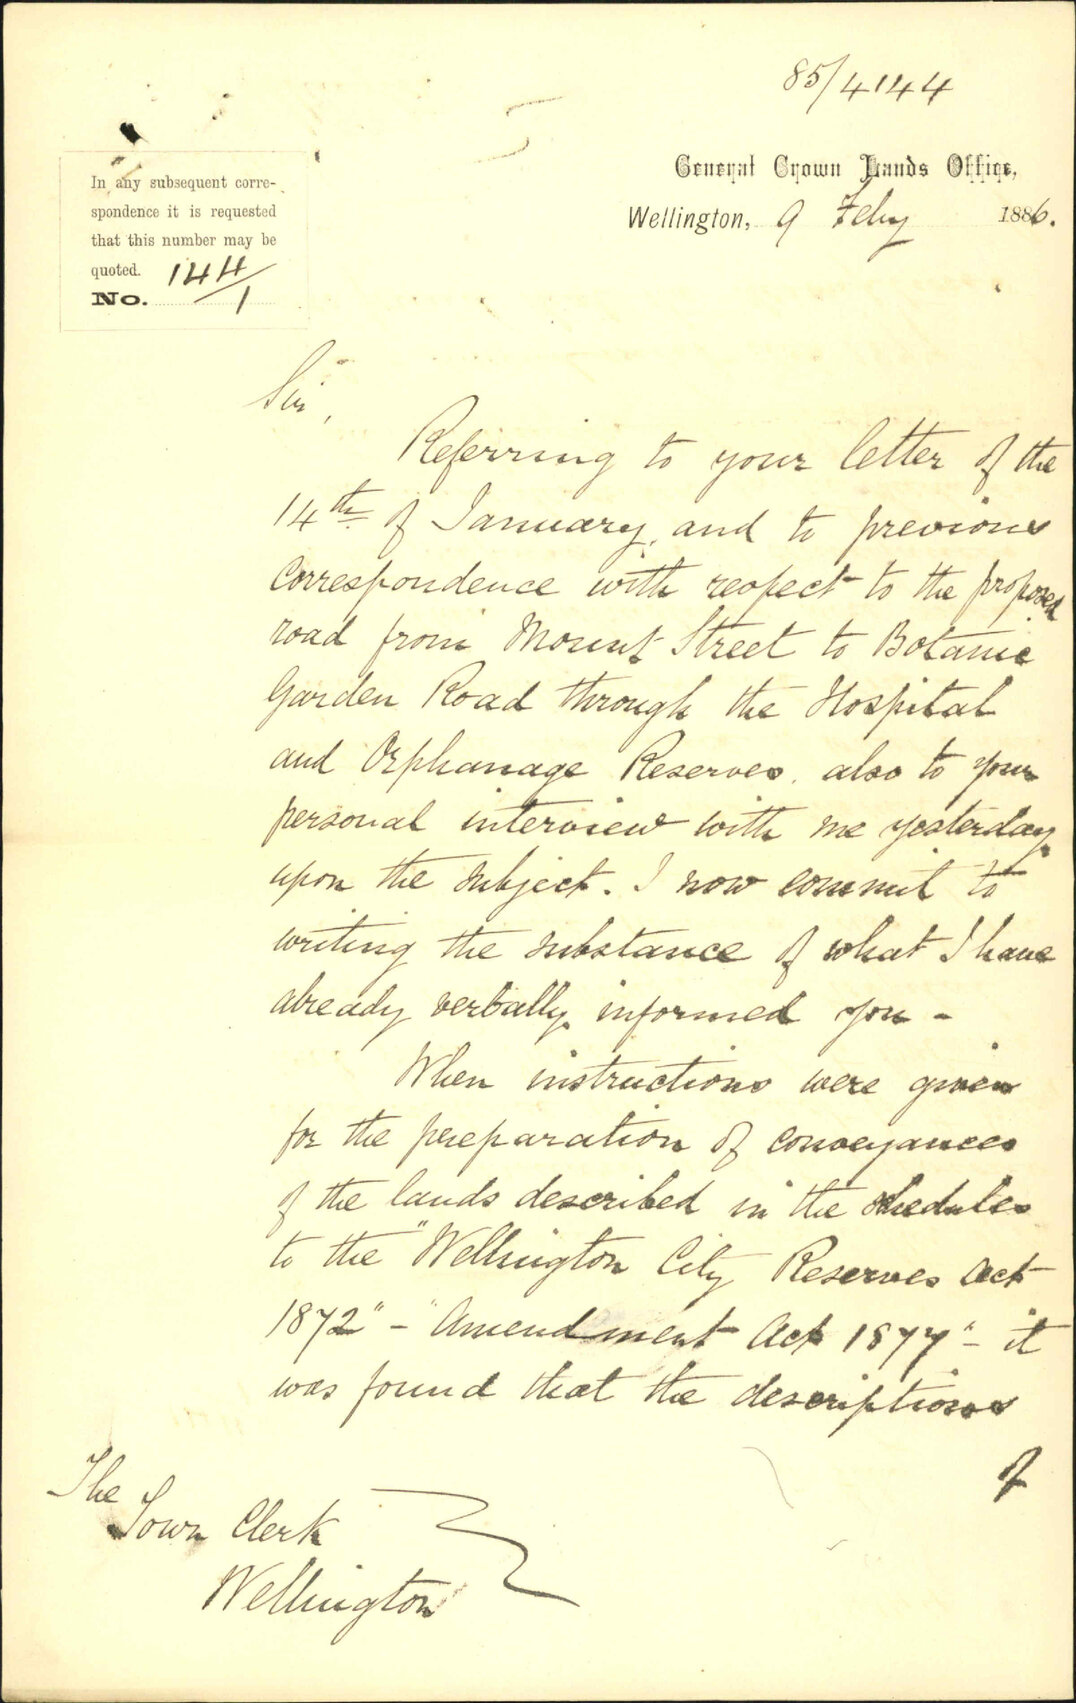 85/4144
General Crown Lands Office,
Wellington, 9 Feby 1886.
In any subsequent corre-
spondence it is requested
that this number may be
quoted.
No. 144/1
Sir,
Referring to your letter of the
14th of January, and to previous
correspondence with respect to the proposed
road from Mount Street to Botanic
Garden Road through the Hospital
and Orphanage Reserves, also to your
personal interview with me yesterday
upon the subject. I now commit to
writing the substance of what I have
already verbally informed you -
When instructions were given
for the preparation of conveyances
of the lands described in the schedules
to the "Wellington City Reserves Act
1872" - "Amendment Act 1877" - it
was found that the descriptions
of
The
Town Clerk
Wellington